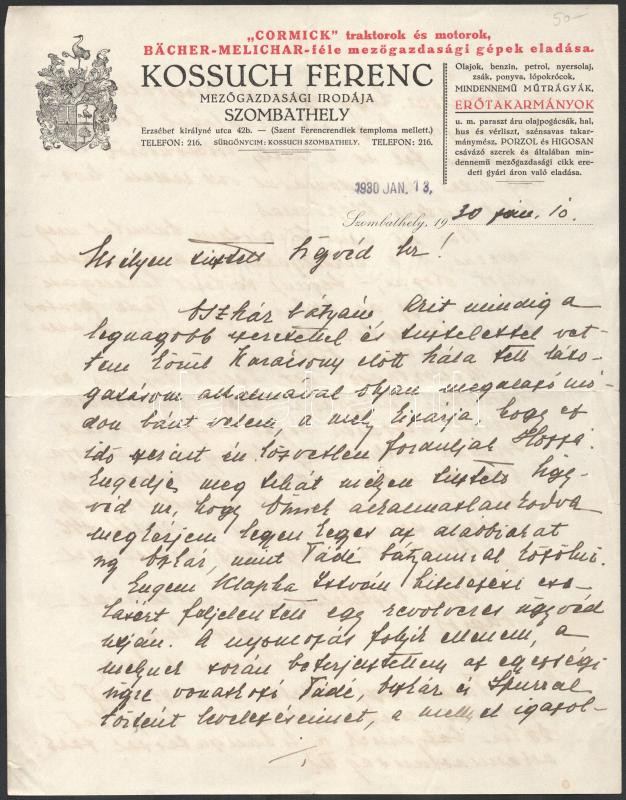 50-
„CORMICK” traktorok és motorok,
BÄCHER-MELICHAR-féle mezőgazdasági gépek eladása.
KOSSUCH FERENC
MEZŐGAZDASÁGI IRODÁJA
SZOMBATHELY
Erzsébet királyné utca 42b. — (Szent Ferencrendiek temploma mellett.)
TELEFON: 216. SÜRGÖNYCIM: KOSSUCH SZOMBATHELY. TELEFON: 216.
Olajok, benzin, petrol, nyersolaj,
zsák, ponyva, lópokrócok,
MINDENNEMŰ MŰTRÁGYÁK,
ERŐTAKARMÁNYOK
u. m. paraszt áru olajpogácsák, hal,
hus és vérliszt, szénsavas takar-
mánymész, PORZOL és HIGOSAN
csávázó szerek és általában min-
dennemű mezőgazdasági cikk ere-
deti gyári áron való eladása.
1930 JAN. 13.
Szombathely, 1930 jan. 10.
Mélyen tisztelt Ügyvéd Ur!
Oszkár bátyám kit mindig a
legnagyobb szeretettel és tisztelettel vet-
tem körül Karácsony előtt nála tett láto-
gatásom alkalmával olyan megalázó mó-
don bánt velem, a mely kizárja, hogy ez
idő szerint én közvetlen forduljak Hozzá.
Engedje meg tehát mélyen tisztelt Ügy-
véd ur, hogy Önnek alkalmatlankodva
megkérjem legyen kegyes az alábbiakat
ug Oszkár, mint Tádé bátyámmal közölni.
Engem Klapka István hitelezési csa-
lásért feljelentett egy revolveres ügyvéd
utján. A nyomozás folyik ellenem, a
melynek során beterjesztettem az egyezségi
ügyre vonatkozó Tádé, Oszkár és
történt levelezéseimet, a mellyel igazol-